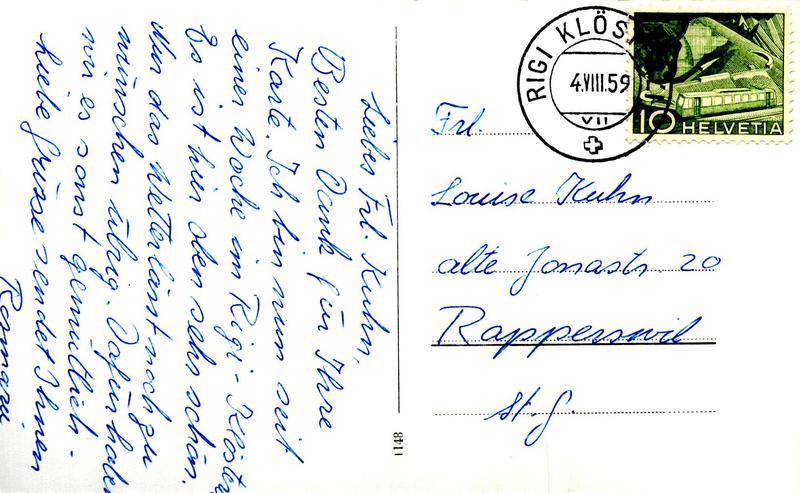 Liebes Frl. Kuhn,
Besten Dank für Ihre
Karte. Ich bin nun seit
einer Woche im Rigi-Klösterli
Es ist hier oben sehr schön.
Nur das Wetter lässt noch zu
wünschen übrig. Dafür haben
wir es sonst gemütlich.-
Liebe Grüsse sendet Ihnen
Rosmarie
1148
RIGI KLÖS
4.VIII.59
VII
10 HELVETIA
Frl.
Louise Kuhn
alte Jonastr. 20
Rapperswil
St. G.